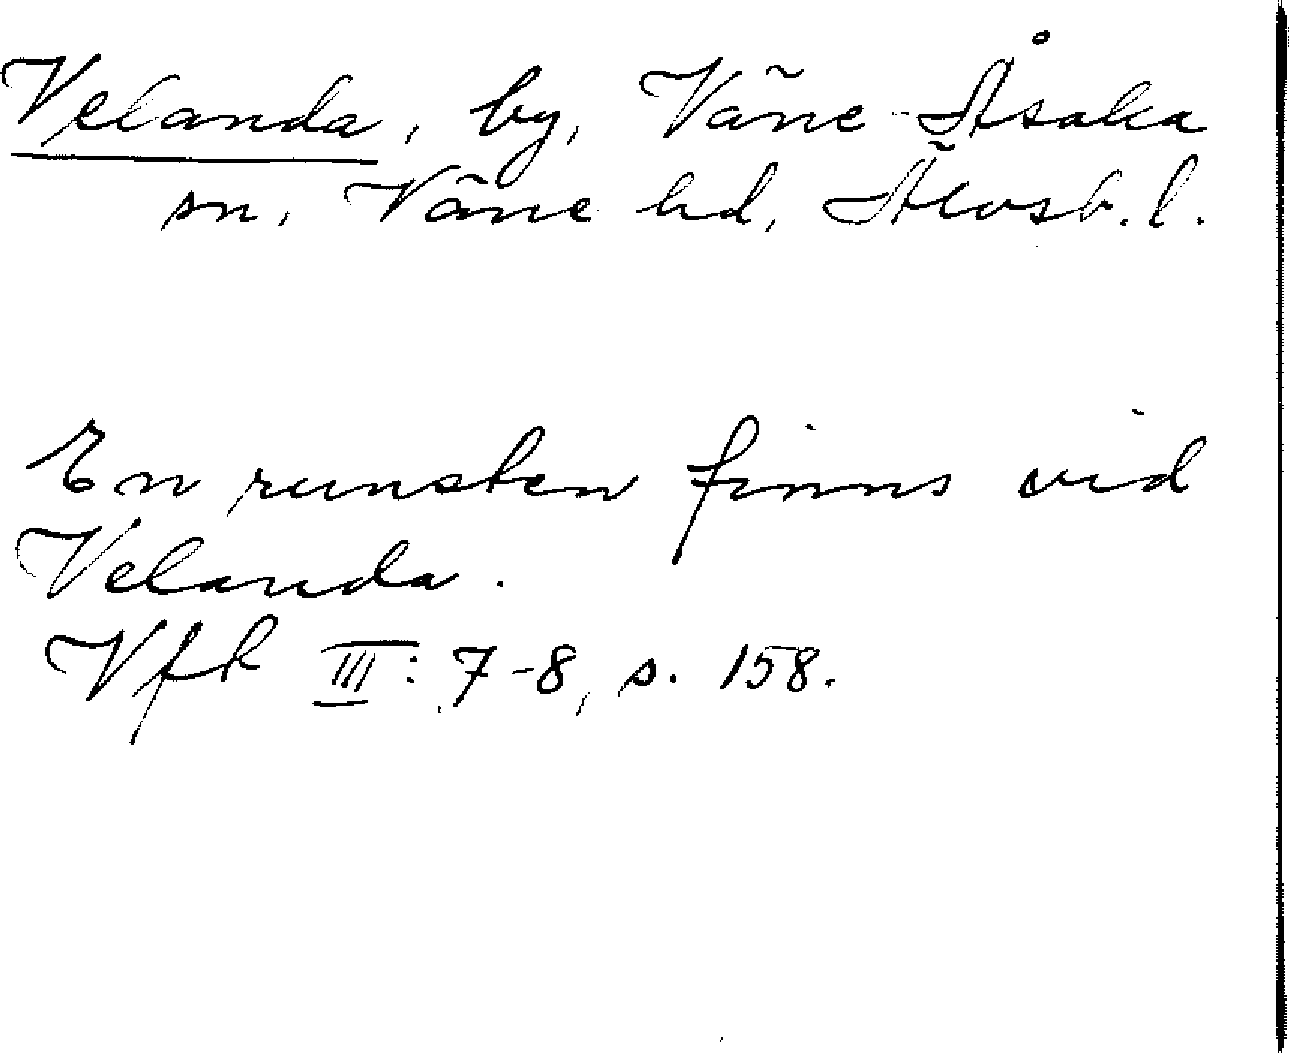 Velanda, by, Väne-Åsaka
sn, Väne hd, Älvsb. l.
En runsten finns vid
Velanda.
Vfk III: 7-8, s. 158.